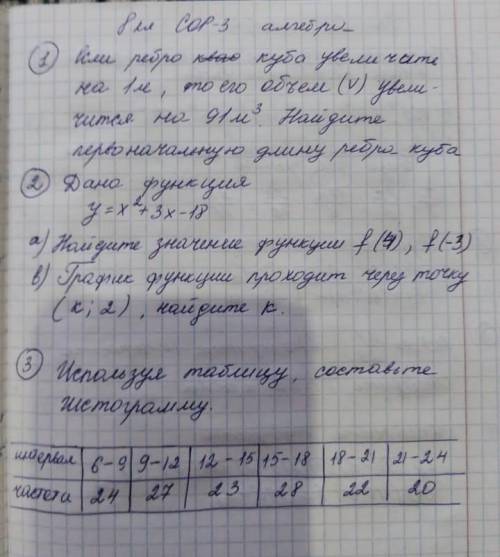 8 кл СОР-3 алгебра
① Если ребро куба увеличите
на 1м, то его объем (V) увели-
чится на 91м³. Найдите
первоначальную длину ребра куба
② Дана функция
y = x² + 3x - 18
а) Найдите значение функции f(4), f(-3)
в) График функции проходит через точку
(к; 2), найдите к.
③ Используя таблицу, составьте
гистограмму.
интервал 6-9 9-12 12-15 15-18 18-21 21-24
частота 24 27 23 28 22 20